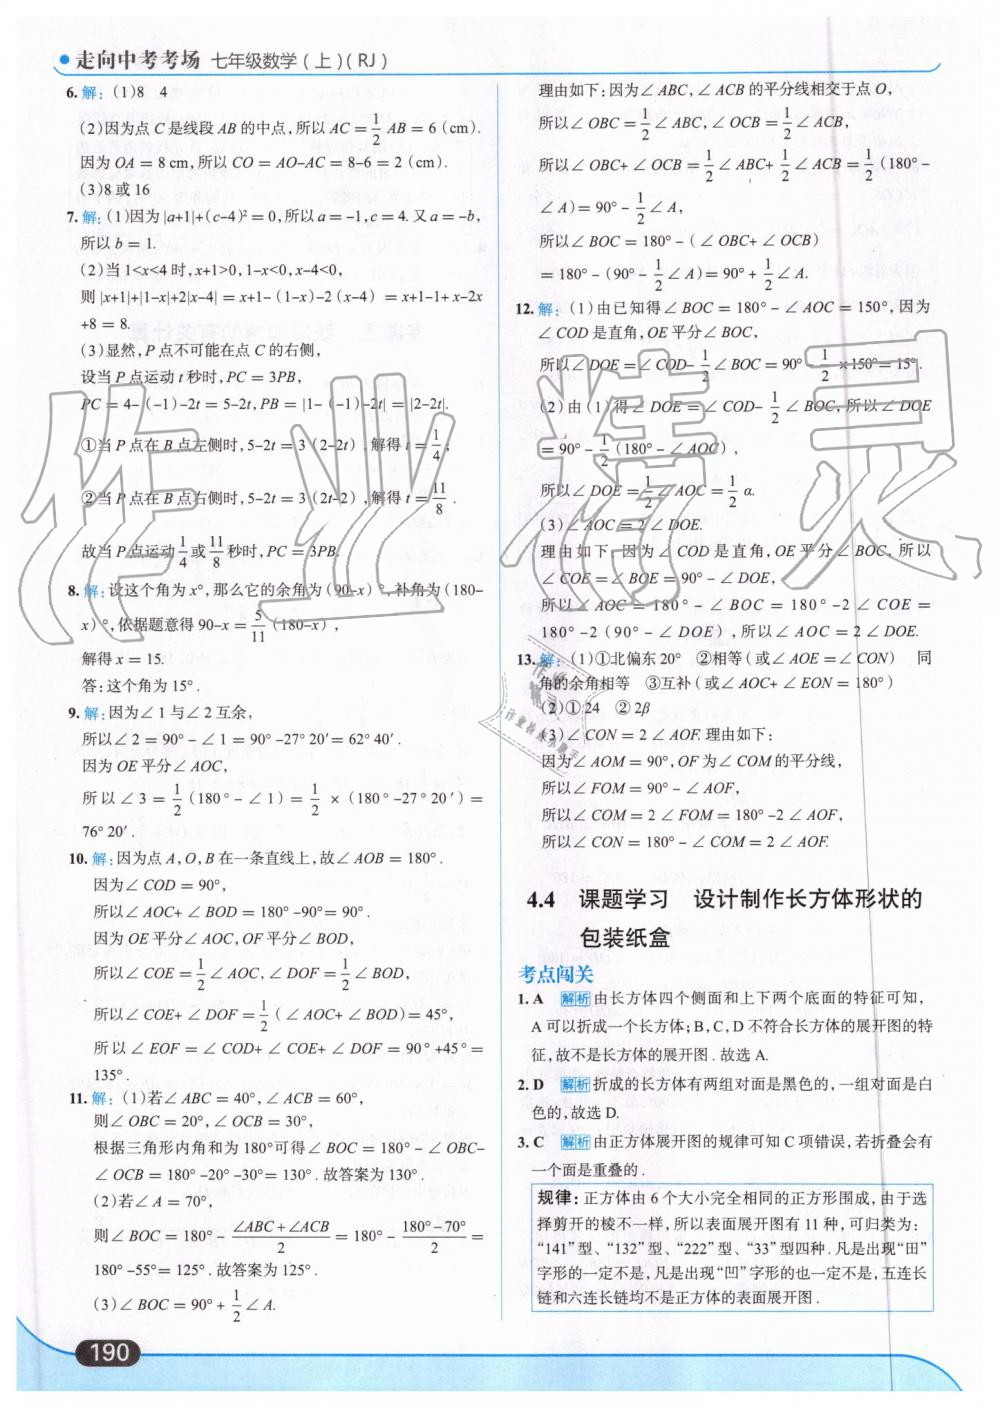 走向中考考场 七年级数学(上)(RJ)
6.解:(1)8 4
(2)因为点C是线段AB的中点,所以AC=1/2AB=6(cm).
因为OA=8cm,所以CO=AO-AC=8-6=2(cm).
(3)8或16
7.解:(1)因为|a+1|+(c-4)²=0,所以a=-1,c=4.又a=-b,
所以b=1.
(2)当1<x<4时,x+1>0,1-x<0,x-4<0,
则|x+1|+|1-x|+2|x-4|=x+1-(1-x)-2(x-4)=x+1-1+x-2x
+8=8.
(3)显然,P点不可能在点C的右侧,
设当P点运动t秒时,PC=3PB,
PC=4-(-1)-2t=5-2t,PB=|1-(-1)-2t|=|2-2t|.
①当P点在B点左侧时,5-2t=3(2-2t),解得t=1/4;
②当P点在B点右侧时,5-2t=3(2t-2),解得t=11/8.
故当P点运动1/4或11/8秒时,PC=3PB.
8.解:设这个角为x°,那么它的余角为(90-x)°,补角为(180-
x)°,依据题意得90-x=5/11(180-x),
解得x=15.
答:这个角为15°.
9.解:因为∠1与∠2互余,
所以∠2=90°-∠1=90°-27°20′=62°40′.
因为OE平分∠AOC,
所以∠3=1/2(180°-∠1)=1/2×(180°-27°20′)=
76°20′.
10.解:因为点A,O,B在一条直线上,故∠AOB=180°.
因为∠COD=90°,
所以∠AOC+∠BOD=180°-90°=90°.
因为OE平分∠AOC,OF平分∠BOD,
所以∠COE=1/2∠AOC,∠DOF=1/2∠BOD,
所以∠COE+∠DOF=1/2(∠AOC+∠BOD)=45°,
所以∠EOF=∠COD+∠COE+∠DOF=90°+45°=
135°.
11.解:(1)若∠ABC=40°,∠ACB=60°,
则∠OBC=20°,∠OCB=30°,
根据三角形内角和为180°可得∠BOC=180°-∠OBC-
∠OCB=180°-20°-30°=130°.故答案为130°.
(2)若∠A=70°,
则∠BOC=180°-(∠ABC+∠ACB)/2=180°-(180°-70°)/2=
180°-55°=125°.故答案为125°.
(3)∠BOC=90°+1/2∠A.
理由如下:因为∠ABC,∠ACB的平分线相交于点O,
所以∠OBC=1/2∠ABC,∠OCB=1/2∠ACB,
所以∠OBC+∠OCB=1/2∠ABC+1/2∠ACB=1/2(180°-
∠A)=90°-1/2∠A,
所以∠BOC=180°-(∠OBC+∠OCB)
=180°-(90°-1/2∠A)=90°+1/2∠A.
12.解:(1)由已知得∠BOC=180°-∠AOC=150°,因为
∠COD是直角,OE平分∠BOC,
所以∠DOE=∠COD-1/2∠BOC=90°-1/2×150°=15°.
(2)由(1)得∠DOE=∠COD-1/2∠BOC,所以∠DOE
=90°-1/2(180°-∠AOC),
所以∠DOE=1/2∠AOC=1/2α.
(3)∠AOC=2∠DOE.
理由如下:因为∠COD是直角,OE平分∠BOC,所以
∠COE=∠BOE=90°-∠DOE,
所以∠AOC=180°-∠BOC=180°-2∠COE=
180°-2(90°-∠DOE),所以∠AOC=2∠DOE.
13.解:(1)①北偏东20° ②相等(或∠AOE=∠CON) 同
角的余角相等 ③互补(或∠AOC+∠EON=180°)
(2)①24 ②2β
(3)∠CON=2∠AOF.理由如下:
因为∠AOM=90°,OF为∠COM的平分线,
所以∠FOM=90°-∠AOF,
所以∠COM=2∠FOM=180°-2∠AOF,
所以∠CON=180°-∠COM=2∠AOF.
4.4 课题学习 设计制作长方体形状的
包装纸盒
考点闯关
1.A 解析 由长方体四个侧面和上下两个底面的特征可知,
A可以折成一个长方体;B,C,D不符合长方体的展开图的特
征,故不是长方体的展开图.故选A.
2.D 解析 折成的长方体有两组对面是黑色的,一组对面是白
色的,故选D.
3.C 解析 由正方体展开图的规律可知C项错误,若折叠会有
一个面是重叠的.
规律:正方体由6个大小完全相同的正方形围成,由于选
择剪开的棱不一样,所以表面展开图有11种,可归类为:
“141”型、“132”型、“222”型、“33”型四种.凡是出现“田”
字形的一定不是,凡是出现“凹”字形的也一定不是,五连长
链和六连长链均不是正方体的表面展开图.
190
作业精灵